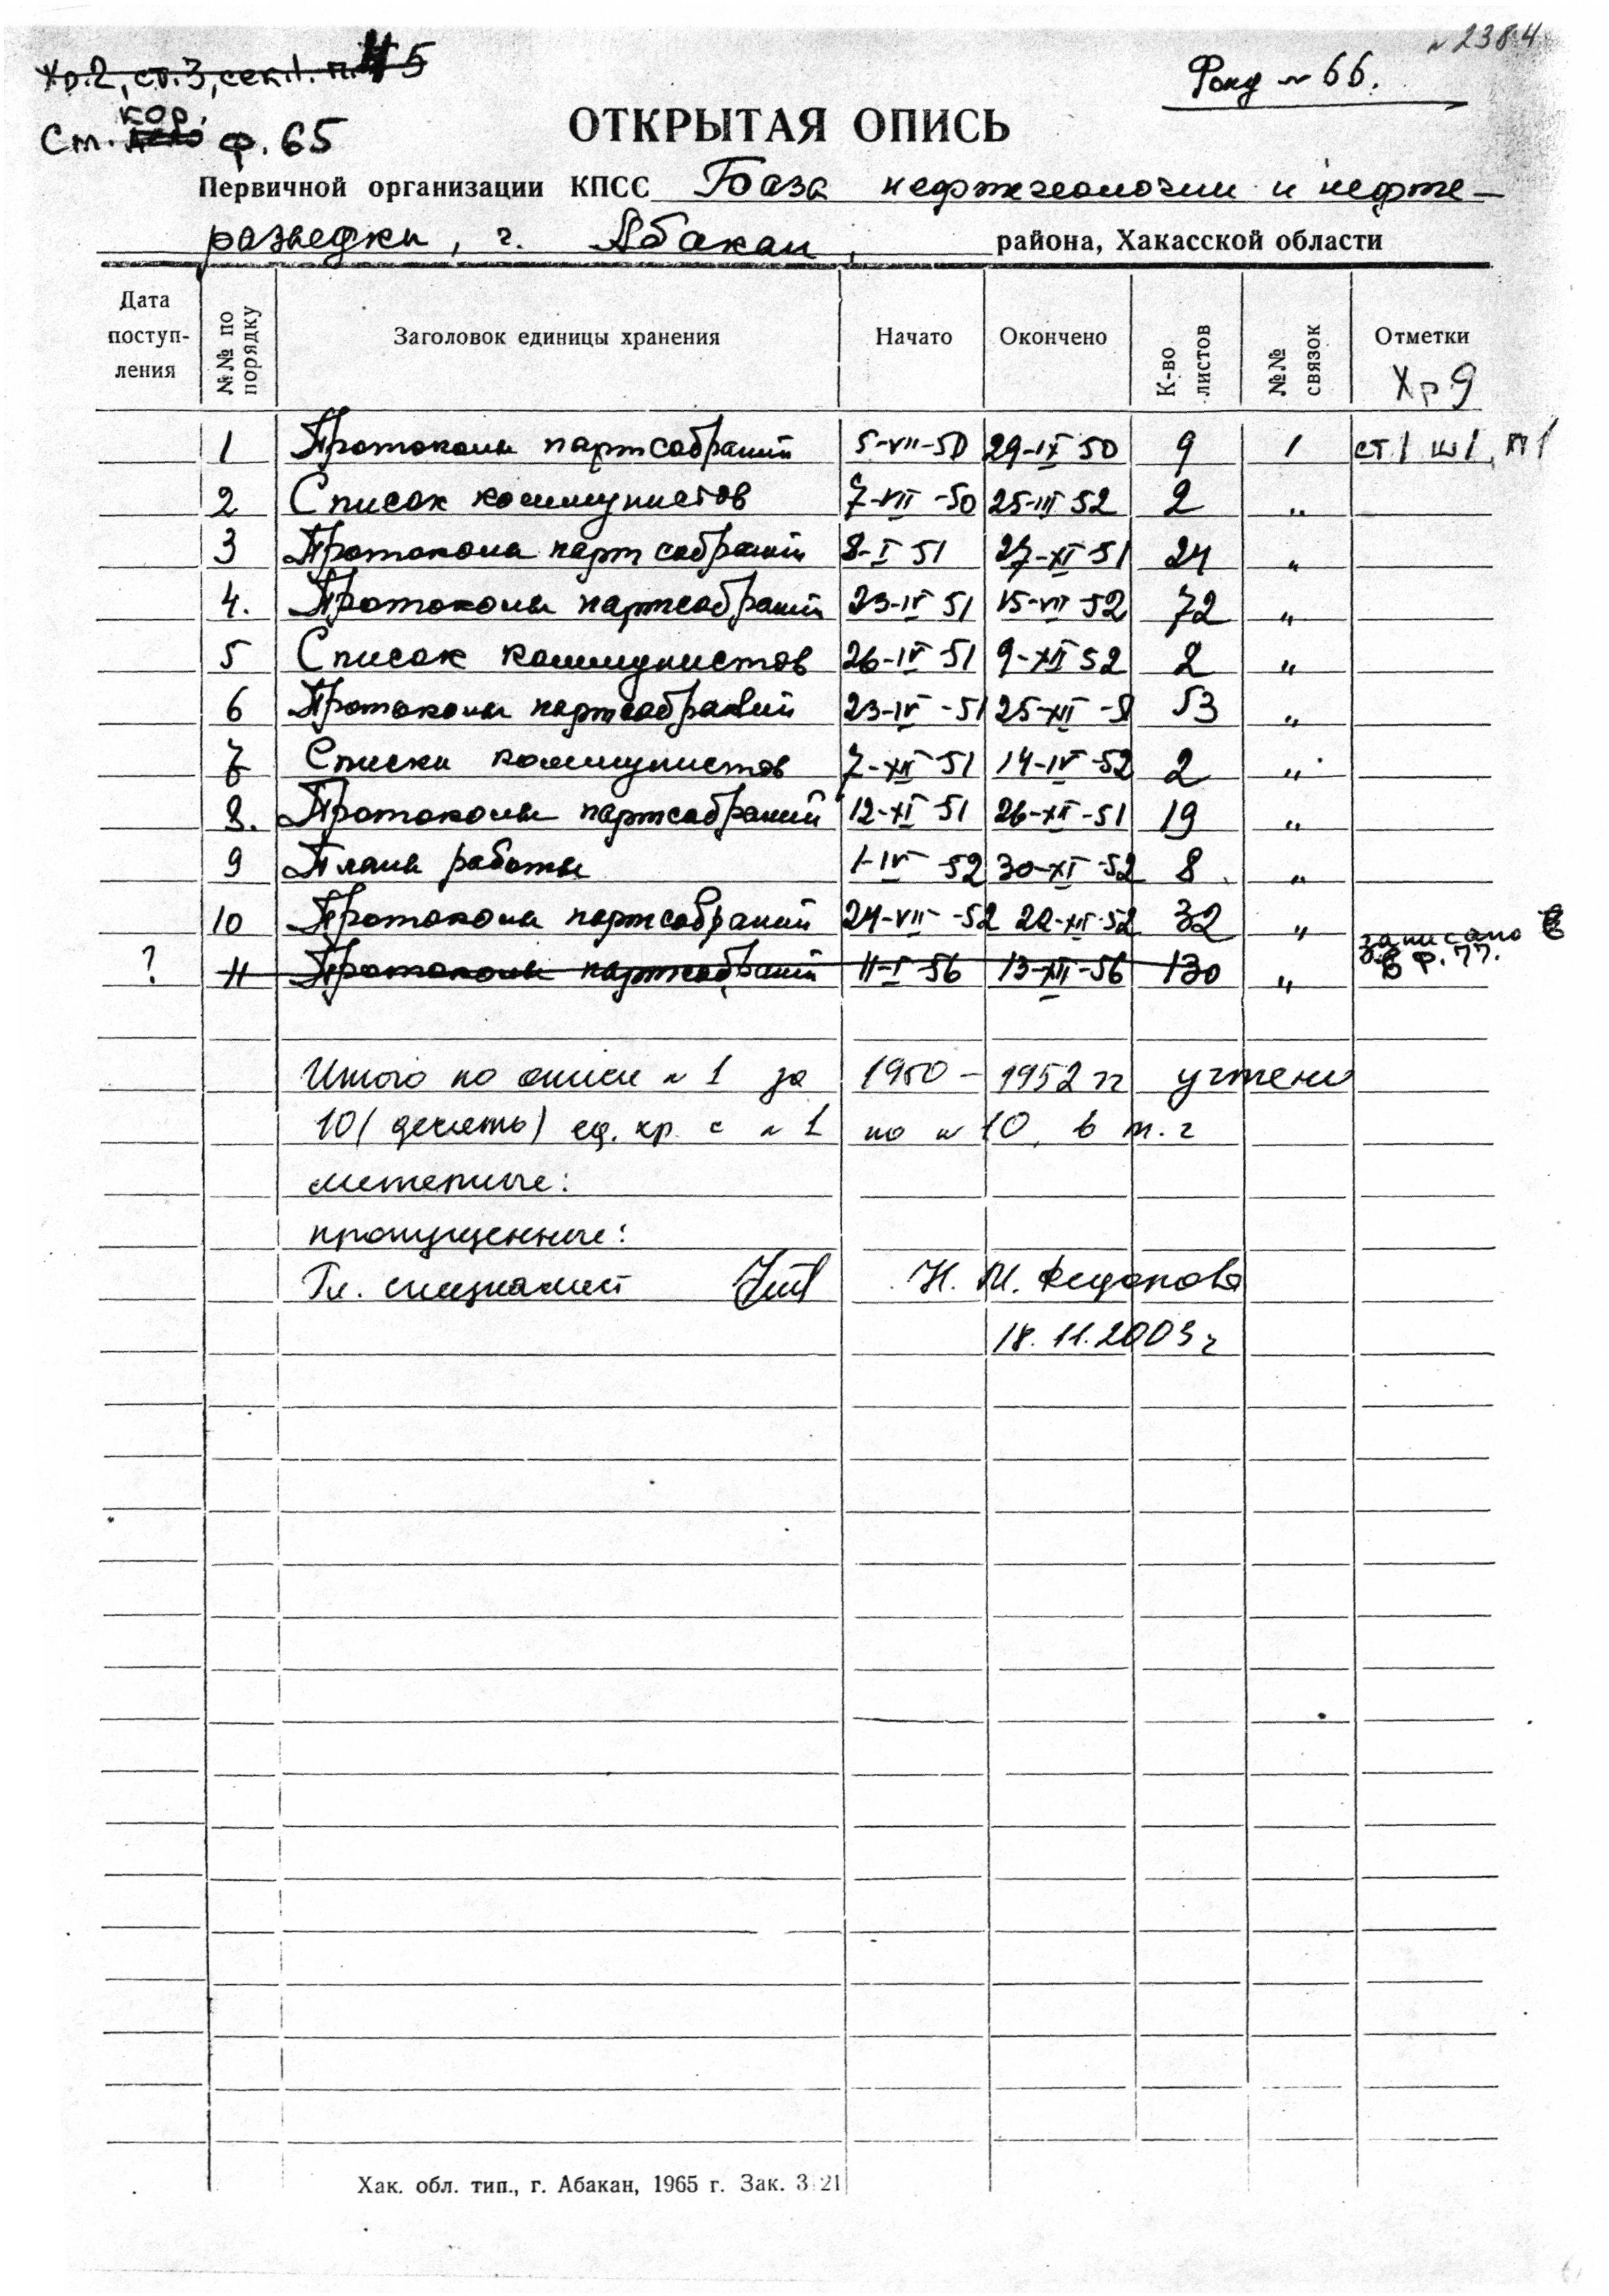 № 2384
Хр.2, ст.3, сек.1. п. 5
Фонд № 66.
кор.
Ст. дело ф. 65
ОТКРЫТАЯ ОПИСЬ
Первичной организации КПСС База нефтегеологии и нефте-
разведки, г. Абакан, района, Хакасской области
Дата поступ- ления №№ по порядку Заголовок единицы хранения Начато Окончено К-во листов №№ связок Отметки
Хр 9
1 Протоколы партсобраний 5-VII-50 29-IX 50 9 1 ст1 ш1, п1
2 Список коммунистов 7-VII-50 25-III 52 2 "
3 Протокола парт собраний 8-I 51 27-XI-51 24 "
4. Протоколы партсобраний 23-IV 51 15-VII 52 72 "
5 Список коммунистов 26-IV-51 9-XII 52 2 "
6 Протоколы партсобраний 23-IV-51 25-XII-51 53 "
7 Списки коммунистов 7-XII 51 14-IV-52 2 "
8. Протоколы партсобраний 12-XI 51 26-XII-51 19 "
9 Планы работы 1-IV-52 30-XI-52 8 "
10 Протокола партсобраний 24-VII-52 22-XII-52 32 "
записано в
? 11 Протоколы партсобраний 11-I-56 13-XII-56 130 " в ф. 77.
Итого по описи № 1 за 1950 - 1952 гг учтено
10 (десять) ед. хр. с № 1 по № 10, в т. ч
литерные:
пропущенные:
Гл. специалист Н. М. Федонова
18.11.2003 г
Хак. обл. тип., г. Абакан, 1965 г. Зак. 3 21